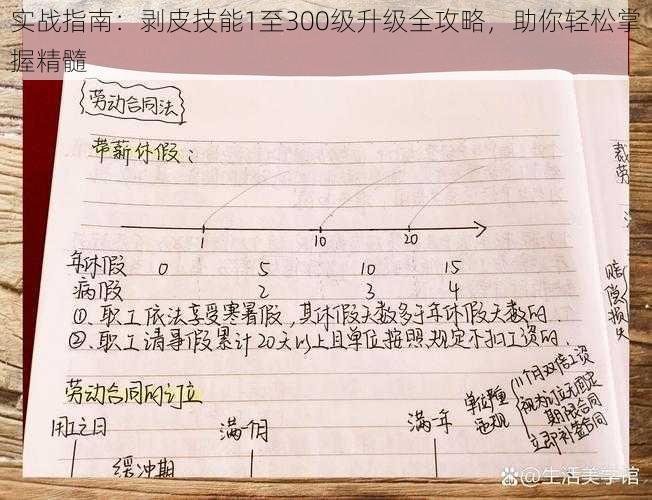 实战指南：剥皮技能1至300级升级全攻略，助你轻松掌
握精髓
劳动合同法
带薪休假：
1 10 20
年休假 0 5 10 15
病假 2 3 4
①.职工依法享受寒暑假，其休假天数多于年休假天数的.
②.职工请事假累计20天以上且单位按照规定不扣工资的.
劳动合同的订立
用工之日 满一个月 满一年
缓冲期
单位
违规
11个月双倍工资
视为订立无固定
期限合同
立即补签合同
裁
劳
赔
偿
损
失
百家号/生活美学馆